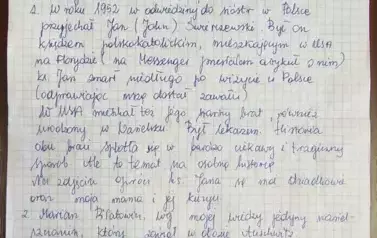 1. W roku 1992 w odwiedziny do sióstr w Polsce
przyjechał Jan (John) Świerzewski. Był on
księdzem polskokatolickim, mieszkającym w USA
na Florydzie (na Messenger przesłałem artykuł o nim)
ks. Jan zmarł niedługo po wizycie w Polsce
(odprawiając mszę dostał zawału)
W USA mieszkał też jego brat, również
urodzony w Był lekarzem. Historia
obu braci splotła się w bardzo ciekawy i tragiczny
sposób. Ale to temat na osobną historię
Na zdjęciu oprócz ks. Jana są moi dziadkowie
oraz moja mama i jej kuzyni
2. Marian wg mojej wiedzy jedyny
który zginął w obozie Auschwitz